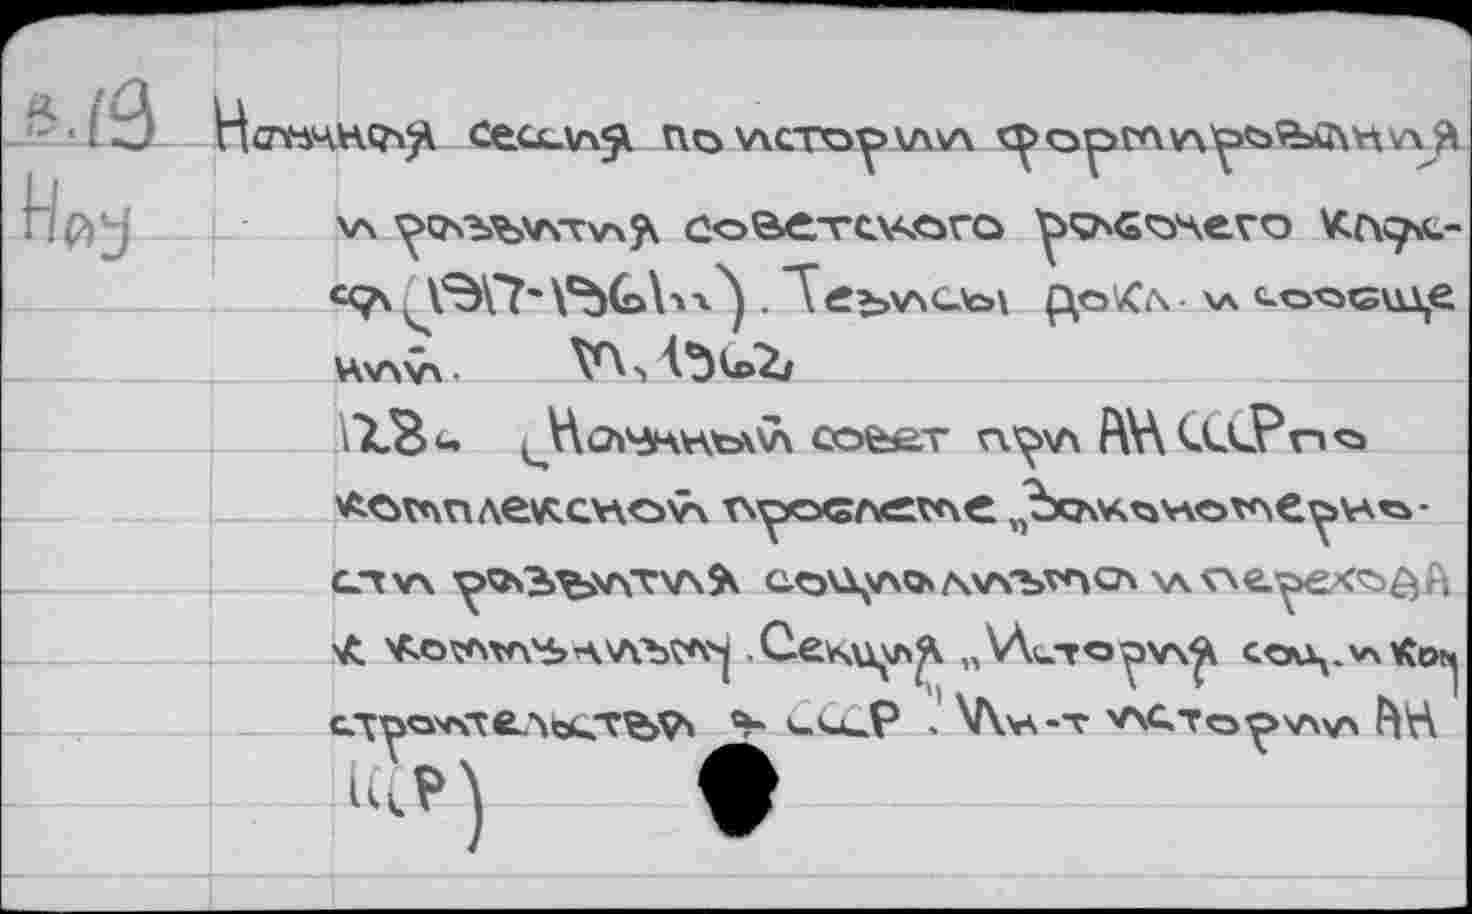 в.19 Научная сессия по истории формирования
Нау и развития советского рабочего клас-
са (1917-1961гг). Тезисы докл. и сообще
ний. М, 1962,
128с (Научный совет при АН СССР по
комплексной проблеме „Закономерно-
сти развития социализма и перехода
к коммунизму. Секция „История соц. и ком
строительства в СССР". Ин-т истории АН
СССР)